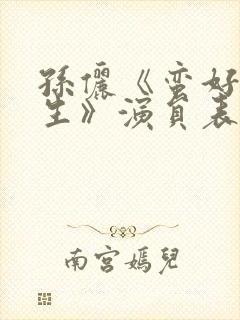 孫儷《蛮好
生》演員表
南宮嫣兒